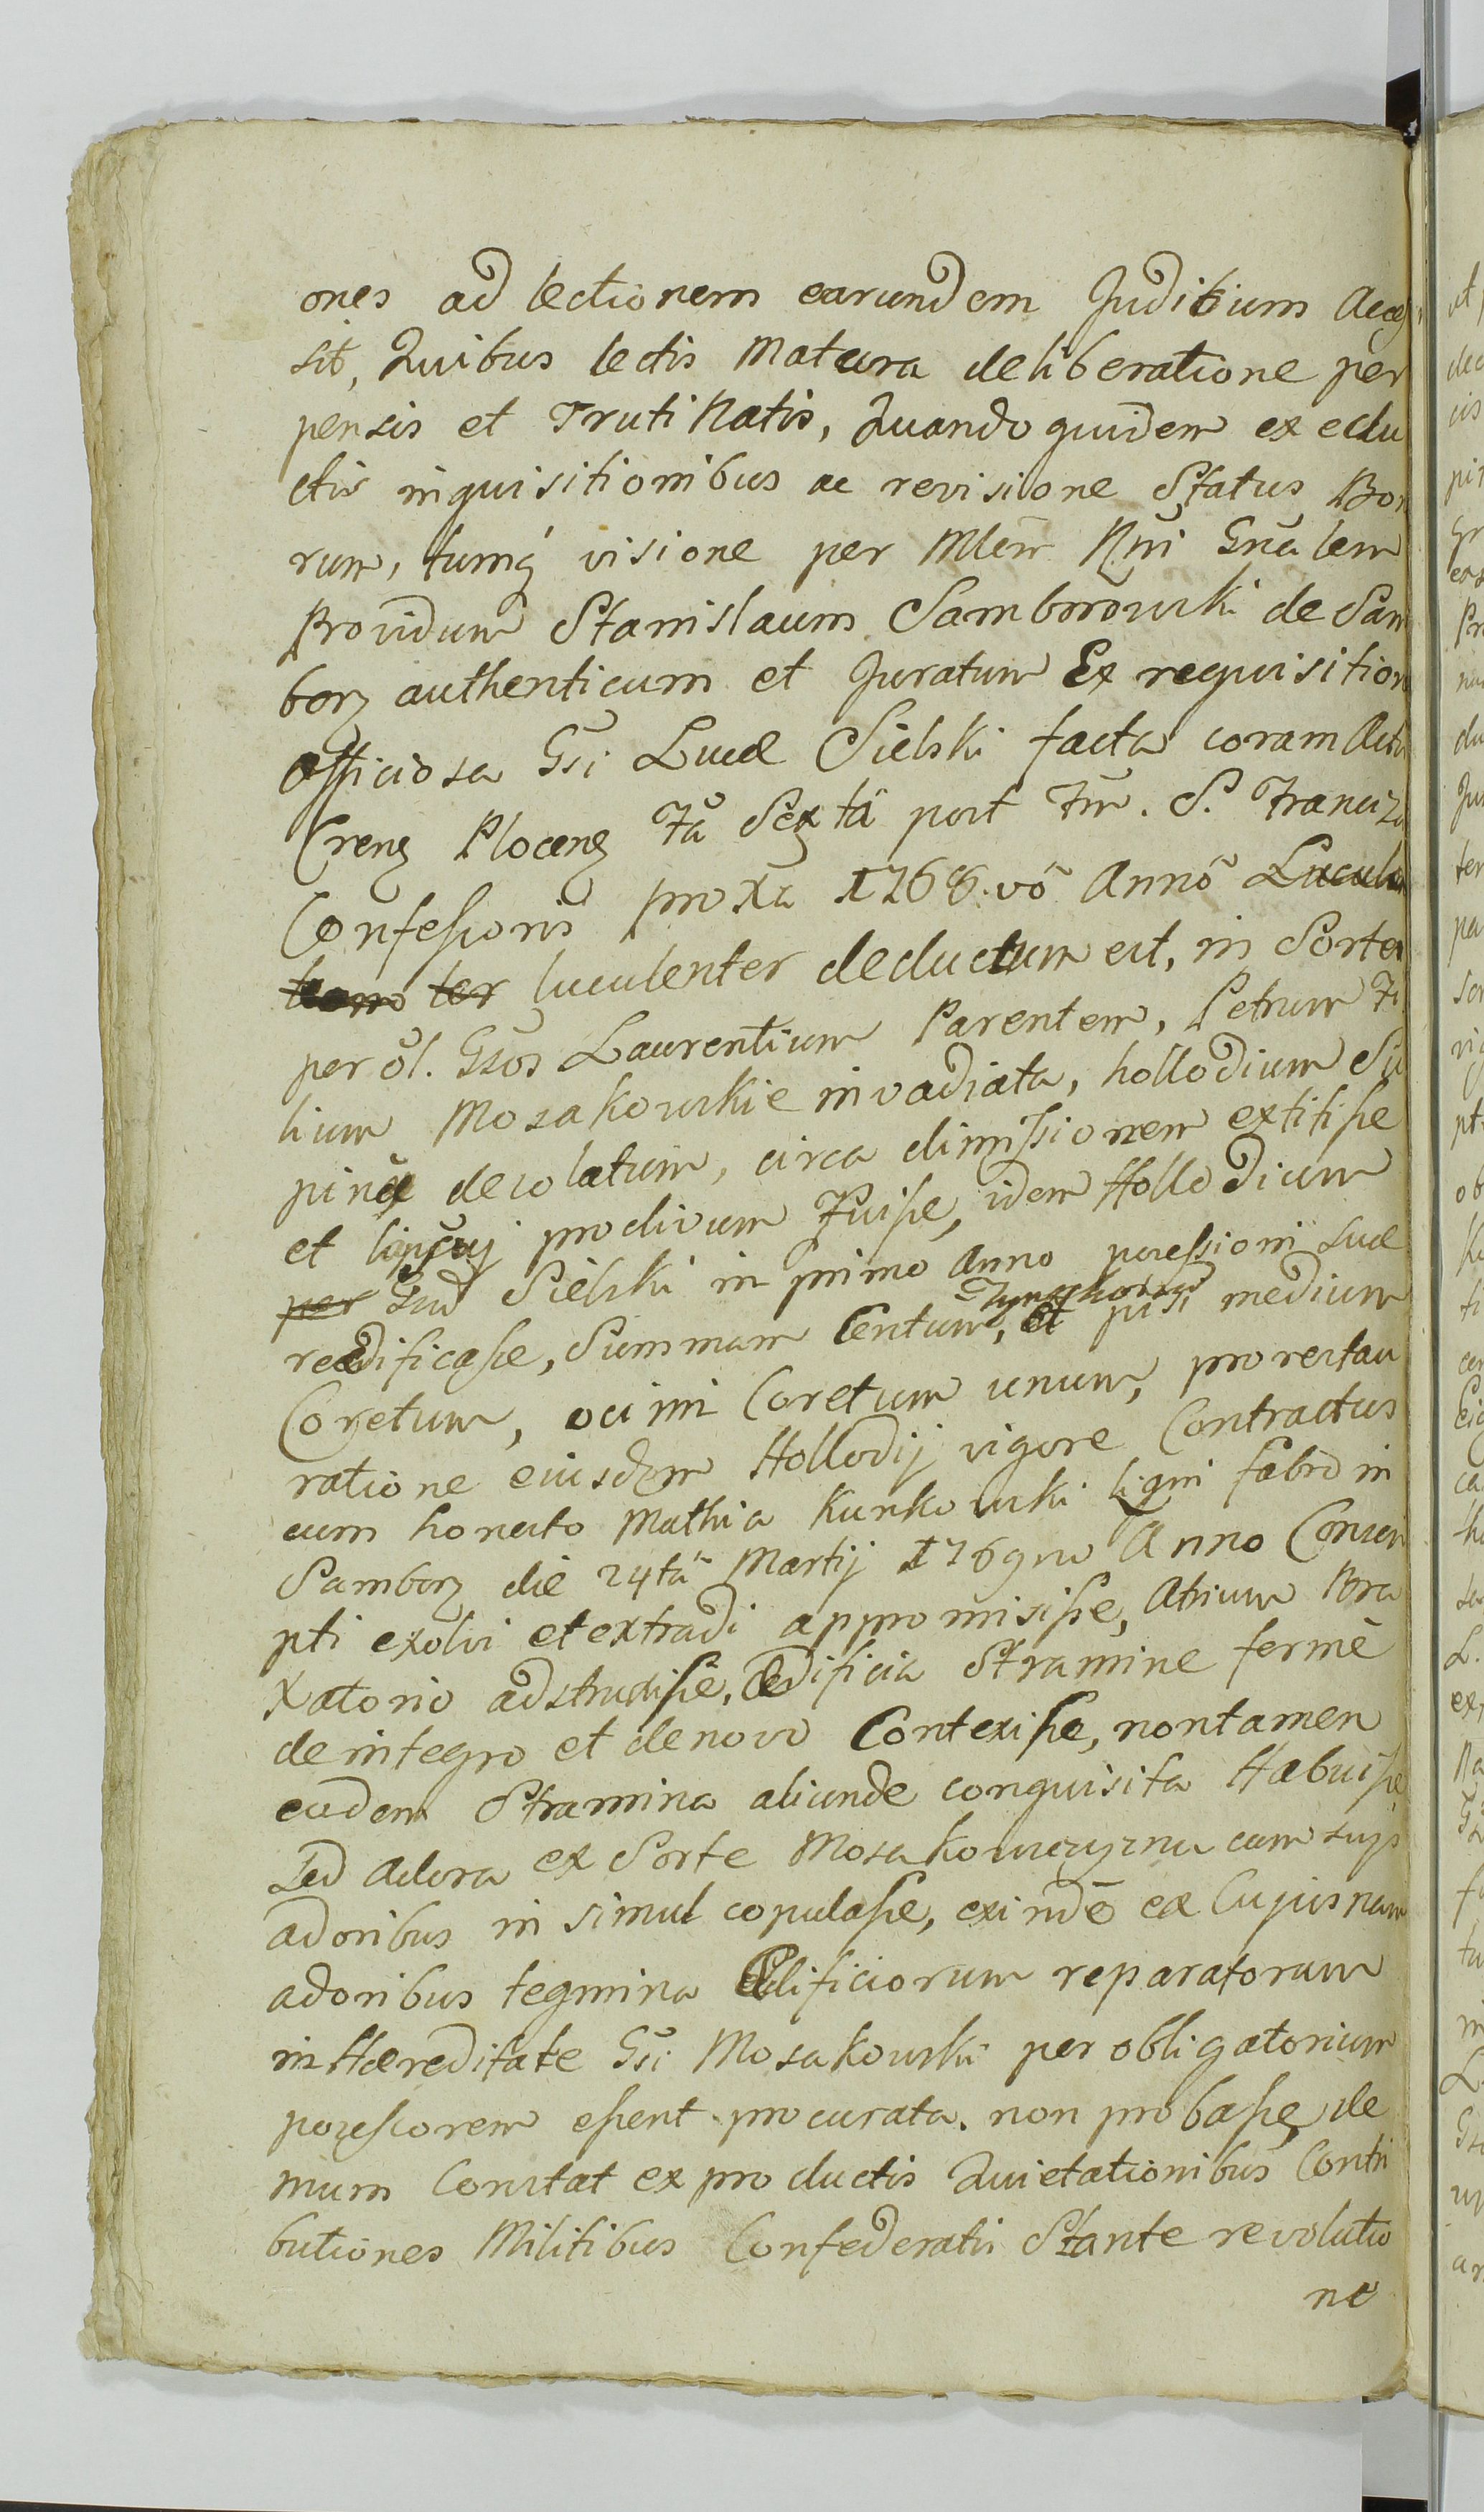 ones ad lectionem earundem Juditium Acces
sit, Quibus lectis Matura deliberatione per
pensis et TrutiNatis, Quandoquidem ex eclu
ctis inquisitionibus ac revisione Status Bon
rum, tumq́ visione per Mlem̃ Rñi Gñalem
Providum Stanislaum Samborowski de Sam
borz authenticum et Juratum Ex requisition
officiosa Gsi Lucæ Sielski facta coram Actis
Crenz Plocenz Fã Sextâ post Fm̃. S. Francizi
Confessoris proxa 1768.vô Annô Lucul
tem ter luculenter deductum est, in Sorte
per ol. Gsos Laurentium Parentem, Petrum Fi
lium Mosakowskie invadiata, hollodium Su
pinæ decolatum, circa dimissionem extitisse
et proclivum Fuisse, idem Hollodium
per Gsud Sielski in primo Anno possessioni Suæ
reedificasse, Summam Centum, Tynphorum et pisi medium
Coretum, ocimi Coretum unum, pro restau
ratione eiusdem Hollodij vigore Contractus
cum honesto Mathia Kunkowski ligni fabro in
Samborz die 24tâ Martij 1769no Anno Conscri
pti exolvi et extradi appromisisse, Atrium Bra
xatorio adstrudisse, Ædificia Stramine fermè
de integro et denovo Contexisse, non tamen
eadem Stramina aliunde conquisita Habuisse
Sed Adora ex Sorte Mosakowszczyzna cum suys
adoribus in simul copulasse, exindè ex Cujusnam
adoribus tegmina Ædificiorum reparatorum
in Hæreditate Gsi Mosakowski per obligatorium
possessorem essent procurata. non probasse, de
mum Constat ex productis Quietationibus Contri
butiones Militibus Confederatis Stante revolutio
ne